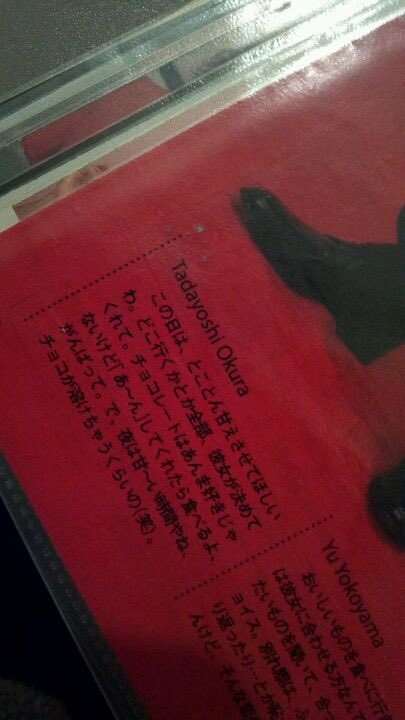 Tadayoshi Okura
この日は、とことん甘えさせてほしい
わ。どこ行くかとか全部、彼女が決めて
くれて。チョコレートはあんま好きじゃ
ないけど「あ〜ん」してくれたら食べるよ、
がんばって。で、夜は甘〜い時間やね、
チョコが溶けちゃうくらいの(笑)。
Yu Yokoyama
おいしいものを食べに行き
は彼女に合わせる方なんで
たいものを聞いて、合
ョイス。別れ際は、ふ
り返ったり…とか
んけど、そんな